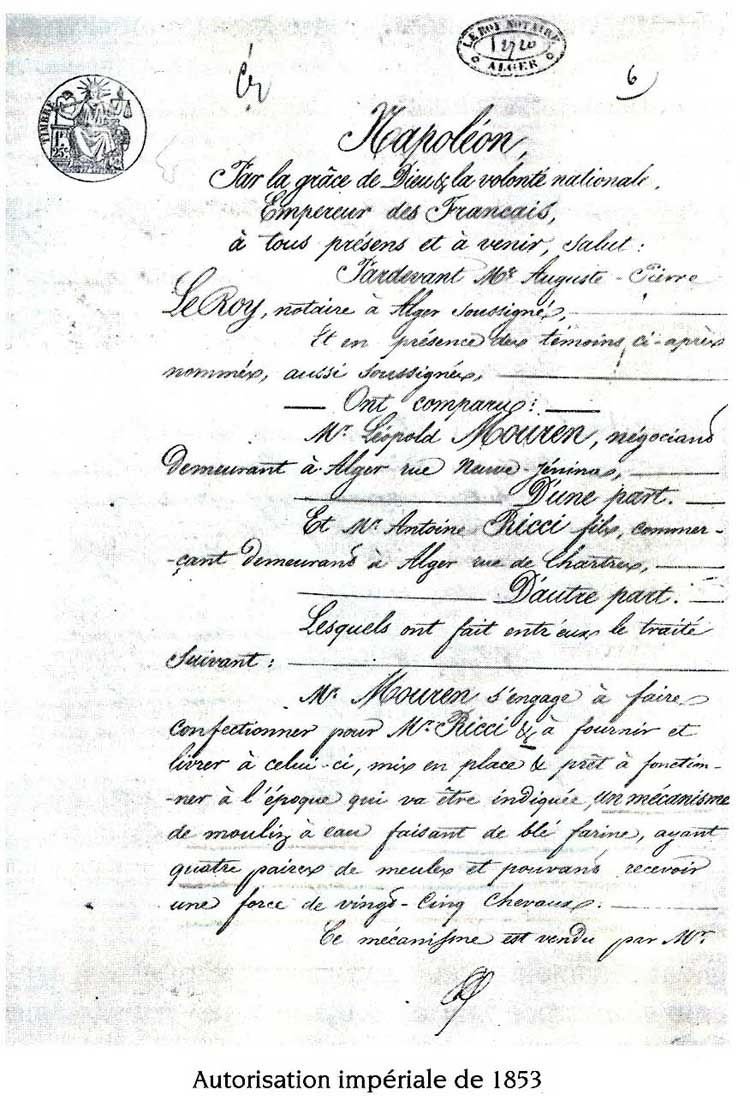 LE ROY NOTAIRE
ALGER
6
TIMBRE
Napoléon,
Par la grâce de Dieu & la volonté nationale,
Empereur des Français,
à tous présens et à venir, Salut :
Pardevant Me Auguste-Pierre
Le Roy, notaire à Alger soussigné,
Et en présence des témoins ci-après
nommés, aussi soussignés,
Ont comparu :
Mr Léopold Mouren, négociant
demeurant à Alger rue Neuve-Jénina,
D'une part.
Et Mr Antoine Ricci fils, commer-
-çant demeurant à Alger rue de Chartres,
D'autre part.
Lesquels ont fait entr'eux le traité
suivant :
Mr Mouren s'engage à faire
confectionner pour Mr Ricci & à fournir et
livrer à celui-ci, mis en place & prêt à fonction-
-ner à l'époque qui va être indiquée, un mécanisme
de moulin à eau faisant de blé farine, ayant
quatre paires de meules et pouvant recevoir
une force de vingt-cinq chevaux.
Ce mécanisme est vendu par Mr
Autorisation impériale de 1853